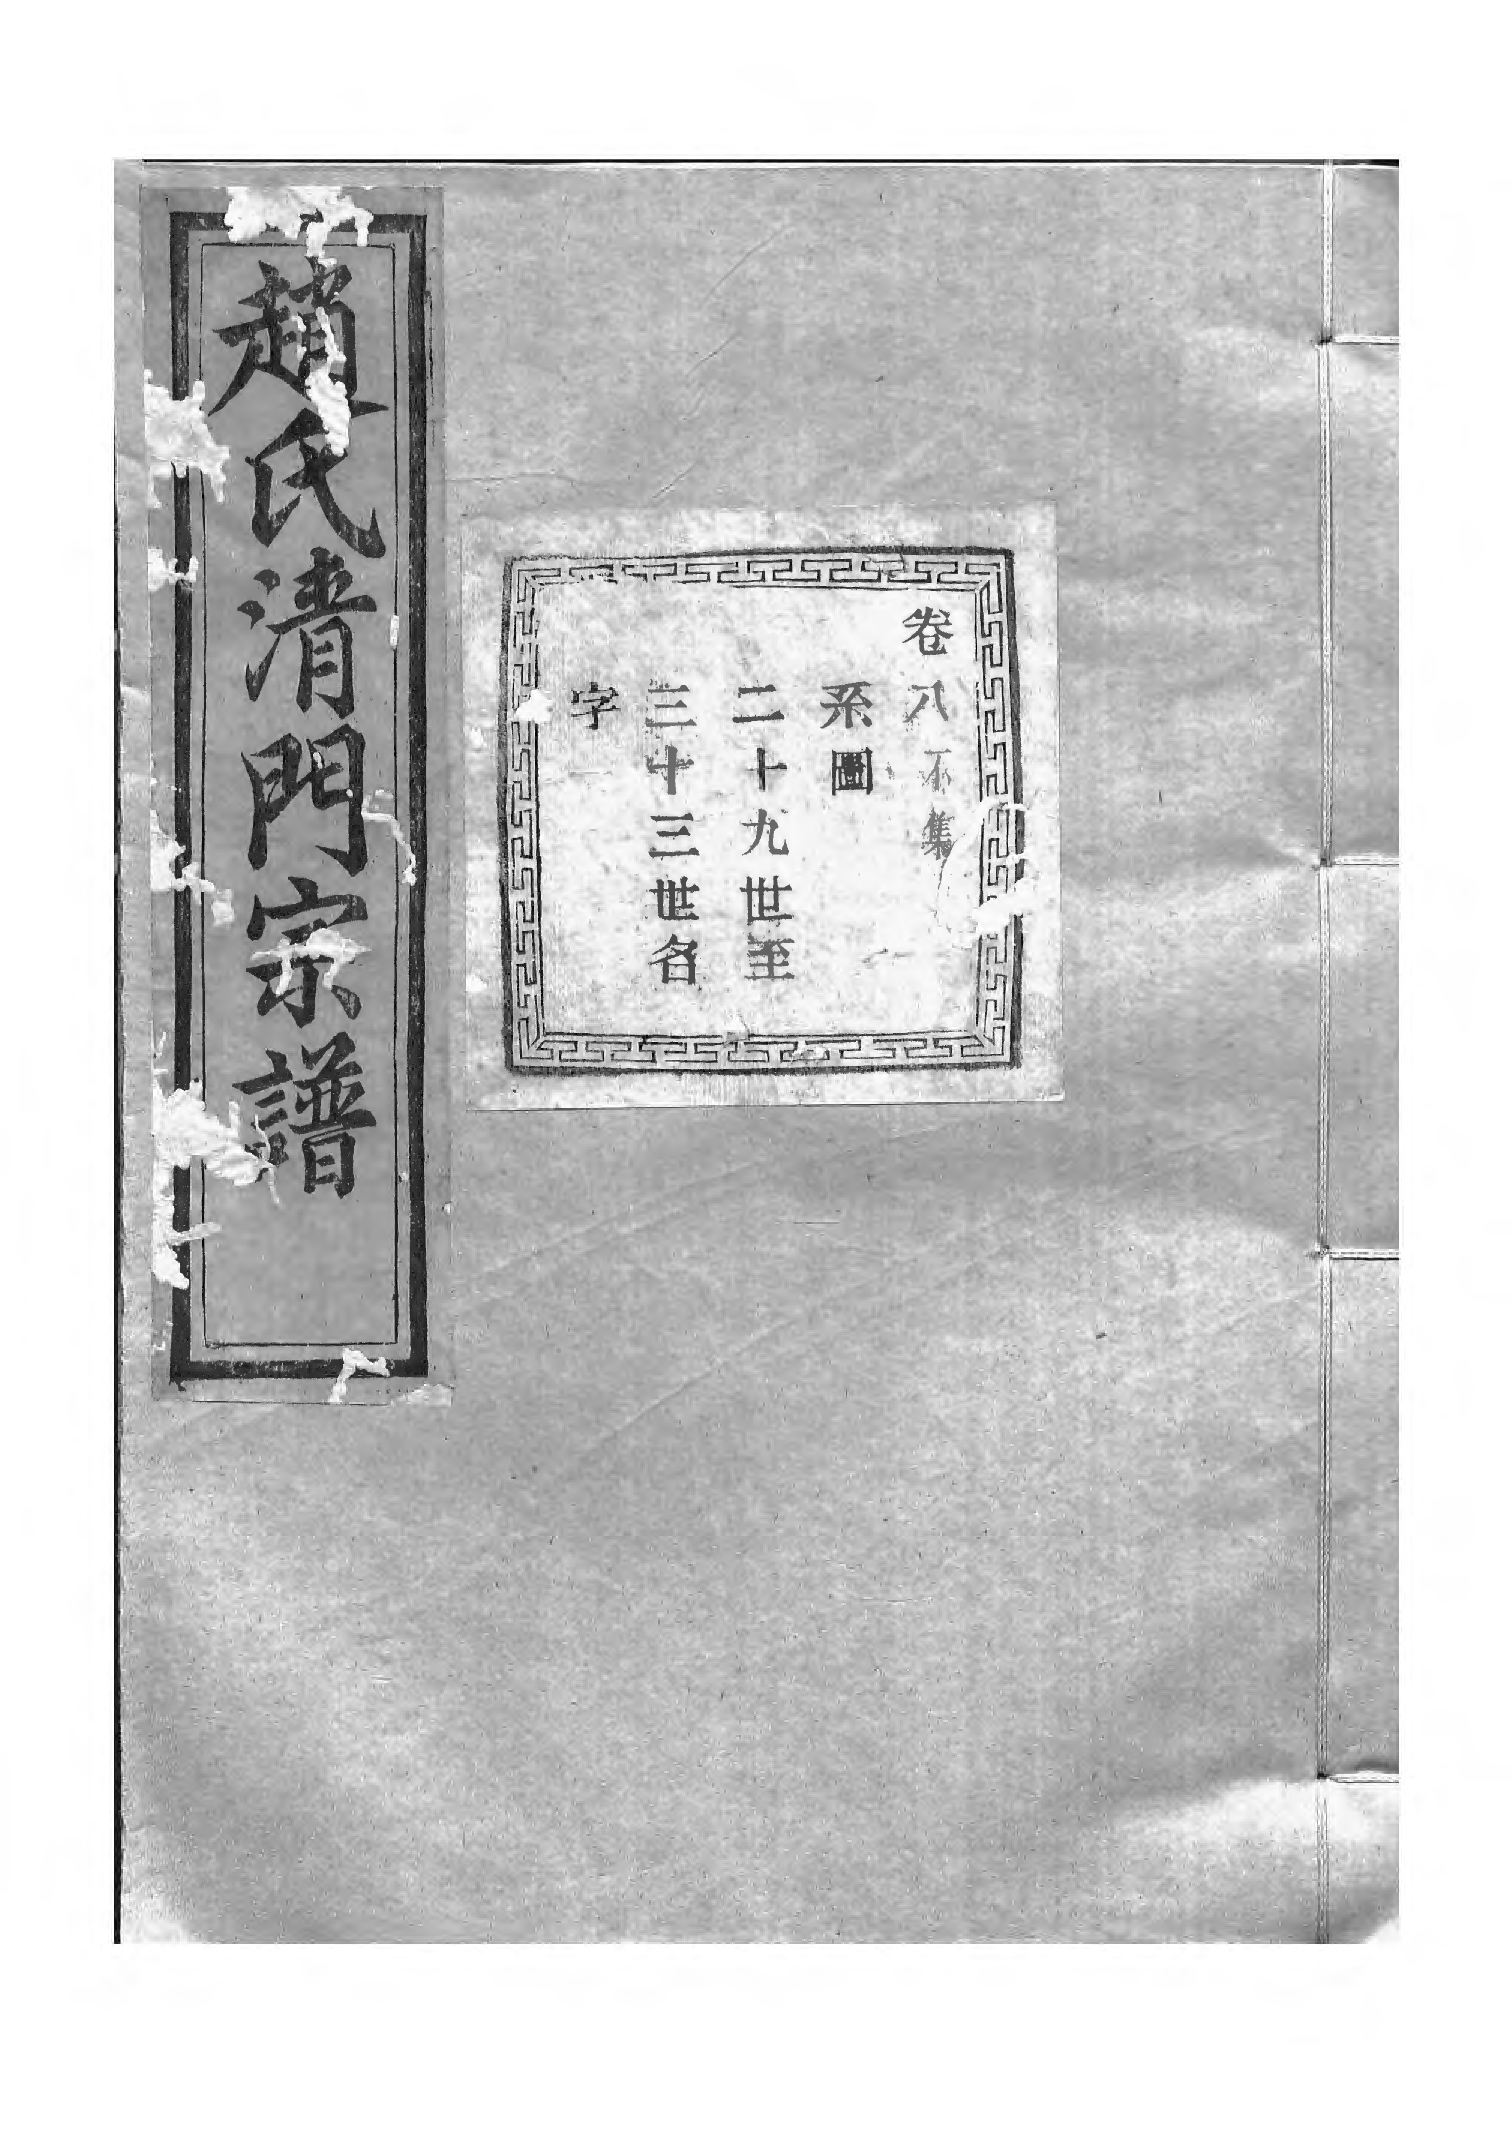 卷八不集
系圖
二十九世至
三十三世名
字
趙氏清門宗譜